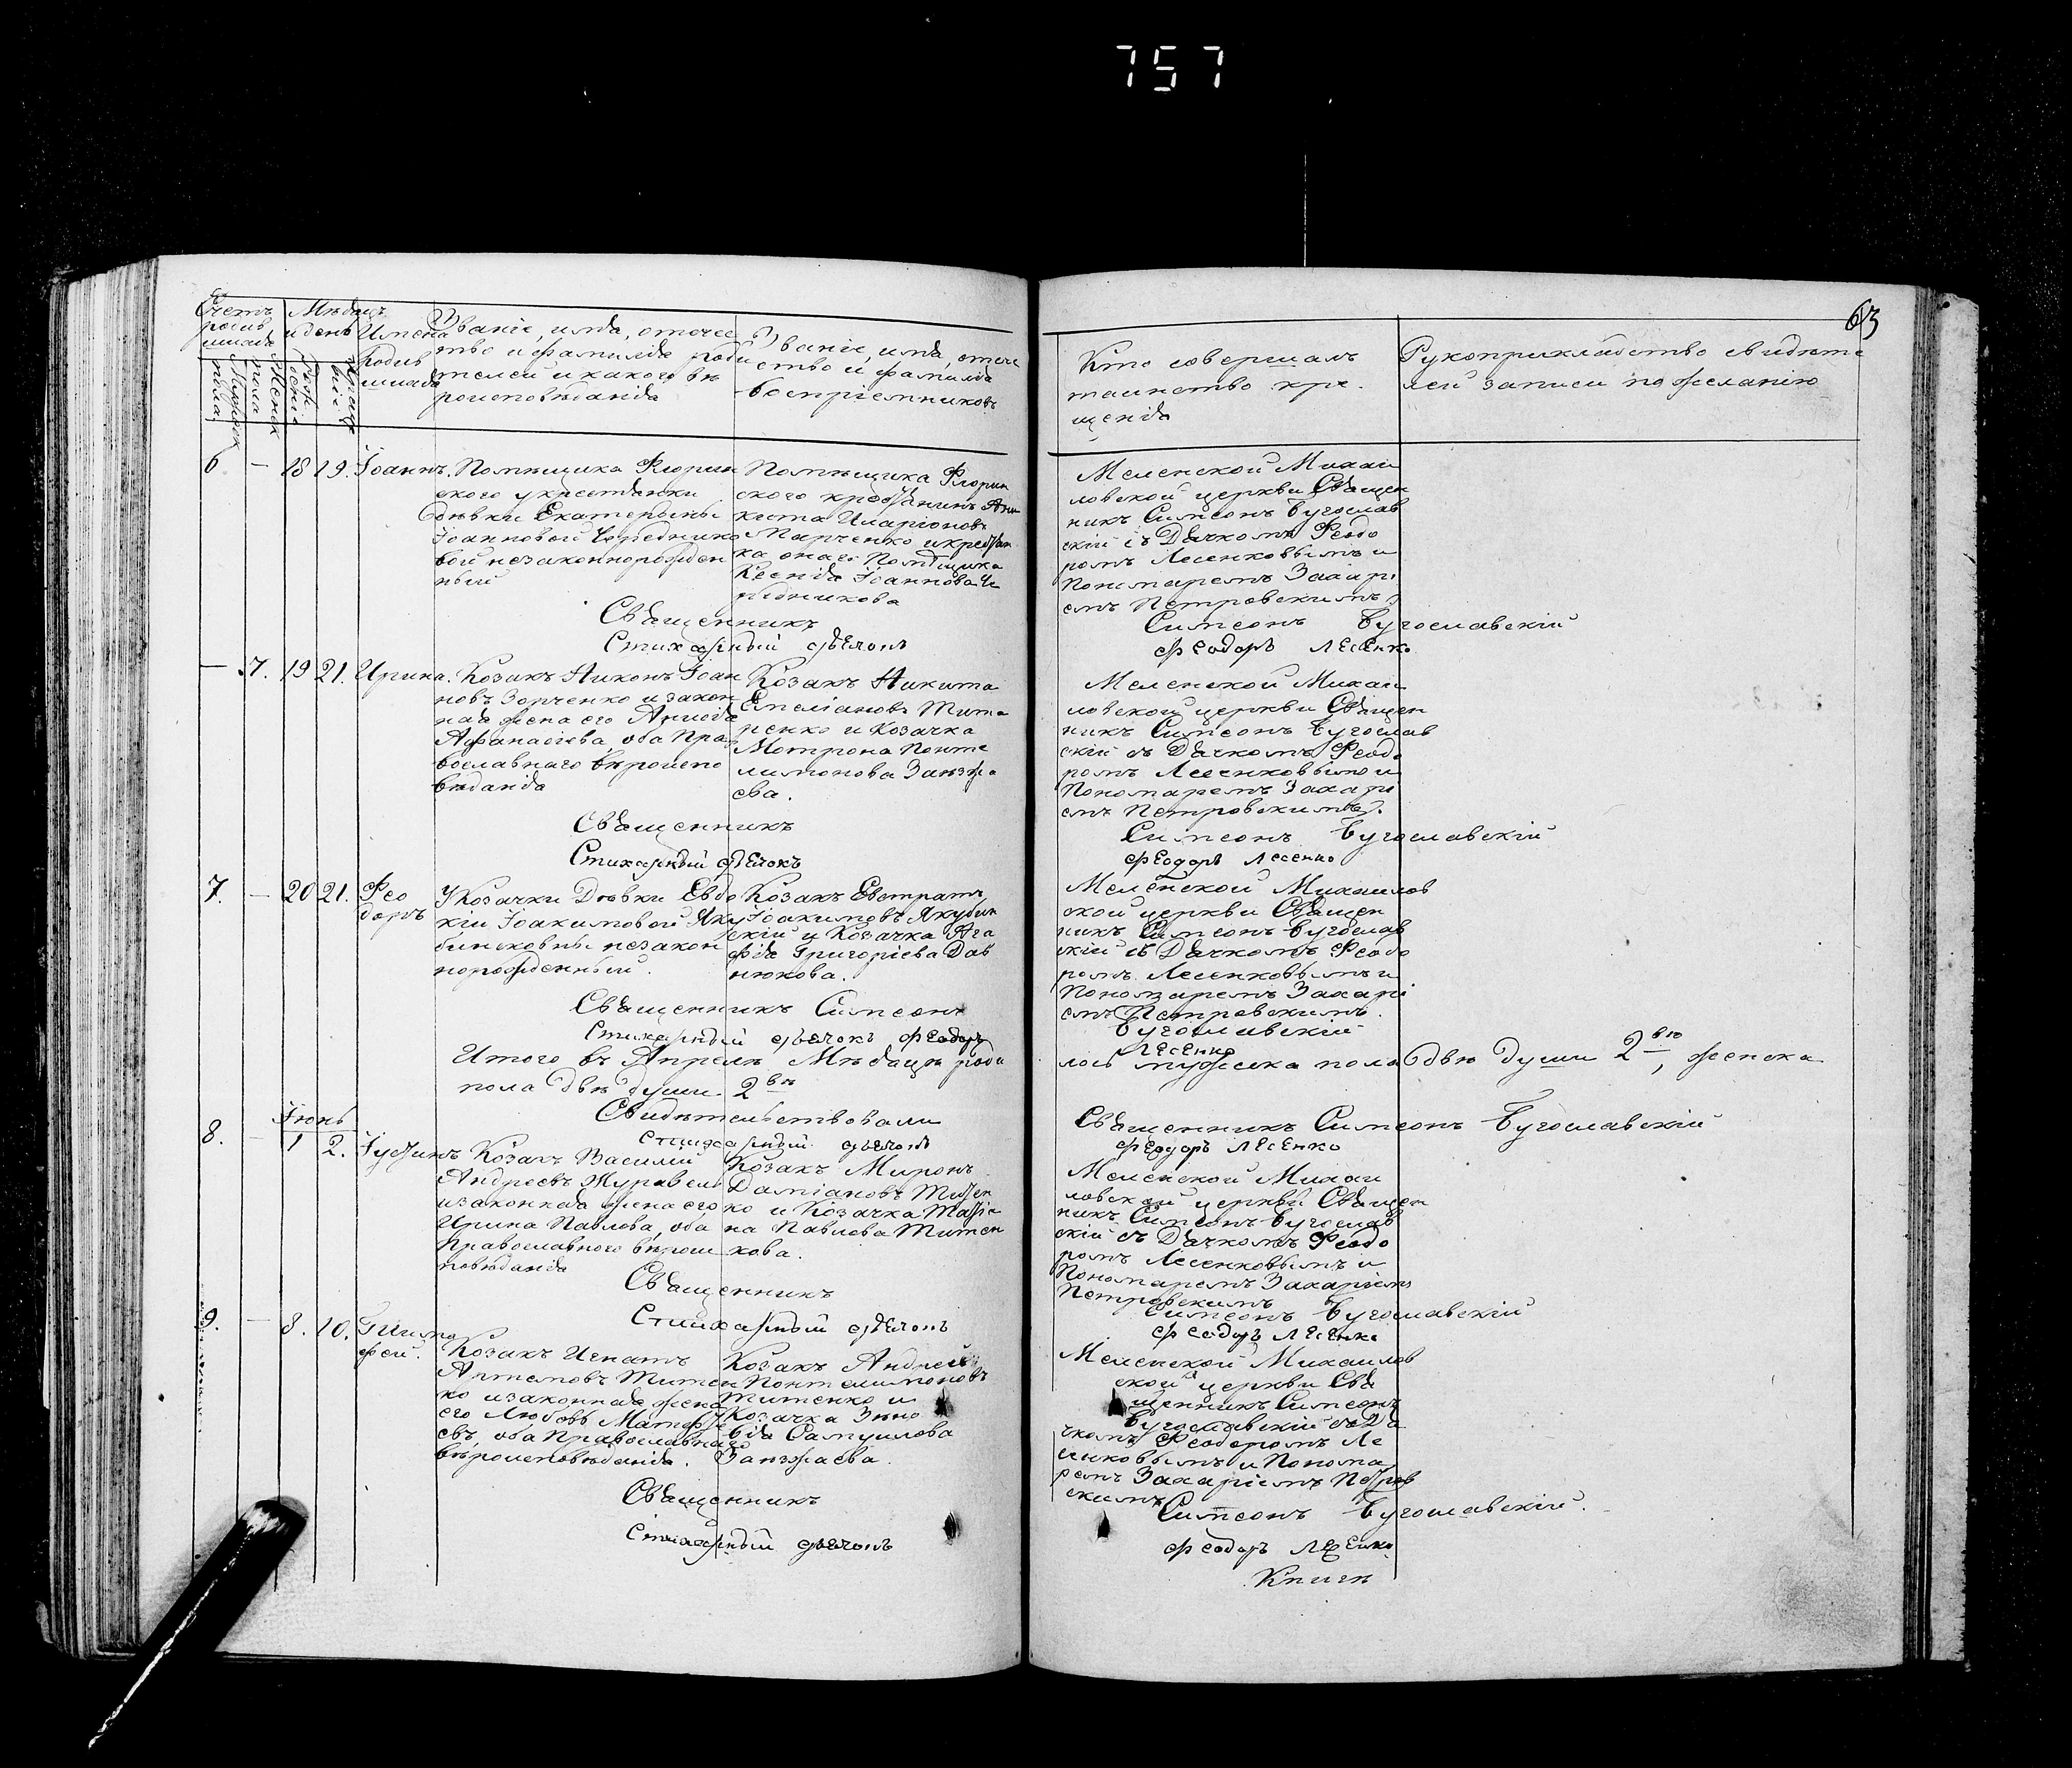 757
63
Счетъ родив шихся
Мужеск пола
Женск пола
Мѣсяцъ и день
Рож денія
Креще нія
Имена Родив шихся
Званіе, имя, оточе
ство и фамилія роди
телей и какого вѣ
роисповѣданія
Званіе, имя, отече
ство и фамилія
воспріемниковъ
Кто совершалъ
таинство кре
щенія
Рукоприкладство свидѣте
лей записи по желанію
6 — 18 19. Іоаннъ.
Помѣщика
ского у крестянки
дѣвки Екатерины
Іоанновой Череднико
вой незаконнорожден
ный
Помѣщика
ского кресянинъ
кита Иларіоновъ
Марченко и крестян
ка онаго Помѣщика
Ксенія Іоаннова Че
редникова
Меленской Михаи
ловской церкви Священ
никъ Симеонъ Бугослав
скій съ Дячкомъ Феодо
ромъ Лесенковымъ и
Пономаремъ Захарі
емъ Петровскимъ
Священникъ Симеонъ Бугославскій
Стихарный дьячокъ Феодоръ Лесенко
— 7. 19 21. Ирина.
Козакъ Никонъ Іоан
новъ Зорченко и закон
ная жена его
Афанасіева, оба Пра
вославнаго вѣроиспо
вѣданія
Козакъ Никита
Емеліановъ Тита
ренко и Козачка
Мотрона Понте
лимонова
ева.
Меленской Михаи
ловской церкви Священ
никъ Симеонъ Бугослав
скій съ Дячкомъ Феодо
ромъ Лесенковымъ и
Пономаремъ Захарі
емъ Петровскимъ.
Священникъ Симеонъ Бугославскій
Стихарный дьячокъ Феодоръ Лесенко
7. — 20 21. Фео
доръ
У Козачки Дѣвки Евдо
кіи Іоакимовой Яку
бинсковны незакон
норожденный.
Козакъ Евстратъ
Іоакимовъ Якубин
скій и Козачка Ага
фія Григоріева Дав
нюкова.
Меленской Михаилов
ской церкви Священ
никъ Симеонъ Бугослав
скій съ Дячкомъ Феодо
ромъ Лесенковымъ и
Пономаремъ Захарі
емъ Петровскимъ.
Священникъ Симеонъ Бугославскій
Стихарный дьячокъ Феодоръ Лесенко
Итого въ Апрелѣ Мѣсяцѣ роди лось мужеска пола двѣ души 2вѣ, женска
пола двѣ души 2вѣ
Свидѣтельствовали Священникъ Симеонъ Бугославскій
Стихарный дьячокъ Феодоръ Лесенко
Іюнь
8. — 1 2. Іустинъ
Козакъ Василій
Андреевъ Журавель
и законная жена его
Ирина Павлова, оба
Православного вѣроис
повѣданія
Козакъ Миронъ
Даміановъ Титен
ко и Козачка Татіа
на Павлова Титен
кова.
Меленской Михаи
ловской церкви Священ
никъ Симеонъ Бугослав
скій съ Дячкомъ Феодо
ромъ Лесенковымъ и
Пономаремъ Захаріемъ
Петровскимъ
Священникъ Симеонъ Бугославскій
Стихарный дьячокъ Феодоръ Лесенко
9. — 8. 10. Тимо
фей.
Козакъ Игнатъ
Артемовъ Титен
ко и законная жена
его Любовь Матфе
евъ, оба Православнаго
вѣроисповѣданія.
Козакъ Андрей
Понтелимоновъ
Титенко и
Козачка Зено
вія Самуилова
Меленской Михаилов
ской церкви Свя
щенникъ Симеонъ
Бугославскій съ Дя
чкомъ Феодоромъ Ле
сенковымъ и Понома
ремъ Захаріемъ Петров
скимъ
Священникъ Симеонъ Бугославскій.
Стихарный дьячокъ Феодоръ Лесенко
Книги